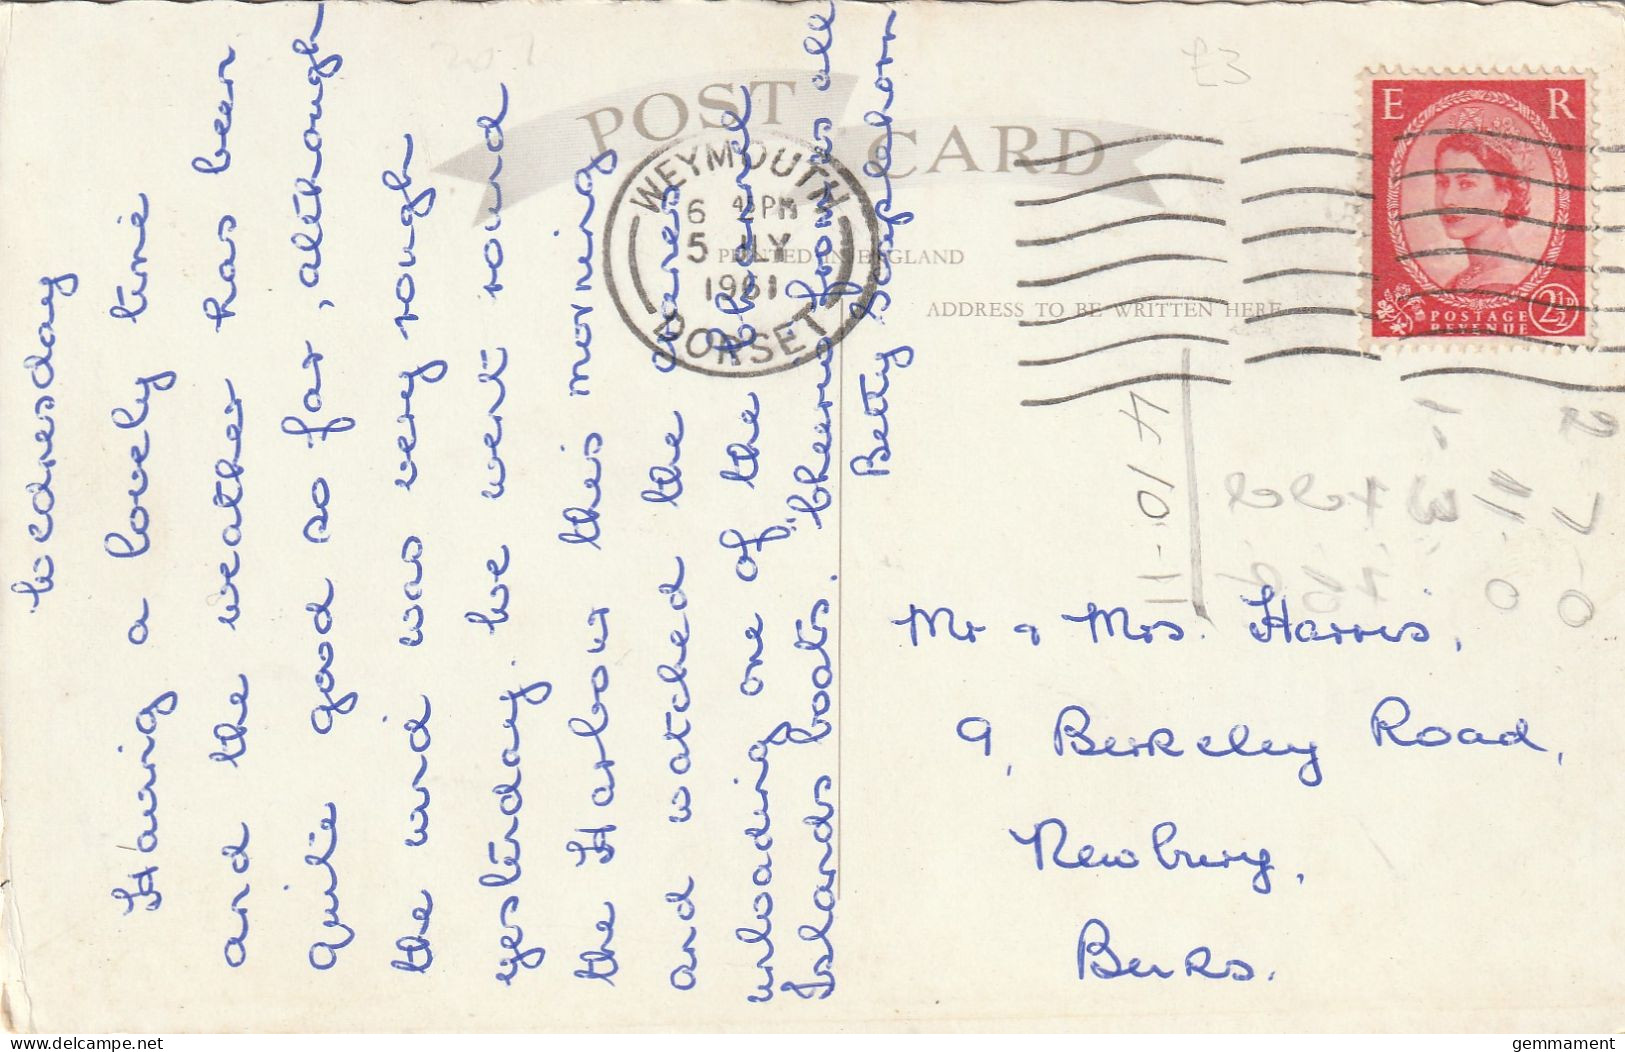 Wednesday
Having a lovely time
and the weather has been
quite good so far, although
the wind was very rough
yesterday. We went round
the Harbour this morning
and watched the cranes
unloading one of the Channel
Islands boats. Cheerio from us all
Betty Staplehorn
POST CARD
PRINTED IN ENGLAND
ADDRESS TO BE WRITTEN HERE
WEYMOUTH
6 45 PM
5 JLY
1961
DORSET
E R
POSTAGE
REVENUE
2½D
£3
Mr & Mrs. Harris,
9, Berkeley Road,
Newbury,
Berks.
delcampe.net
gemmament